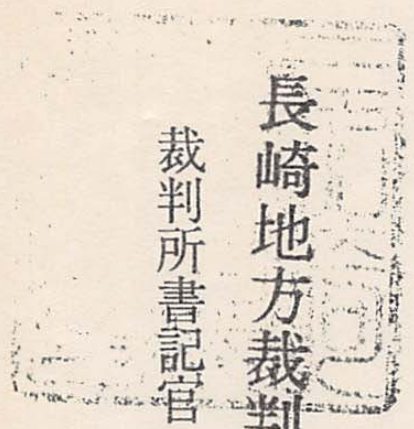 長崎地方裁判
裁判所書記官